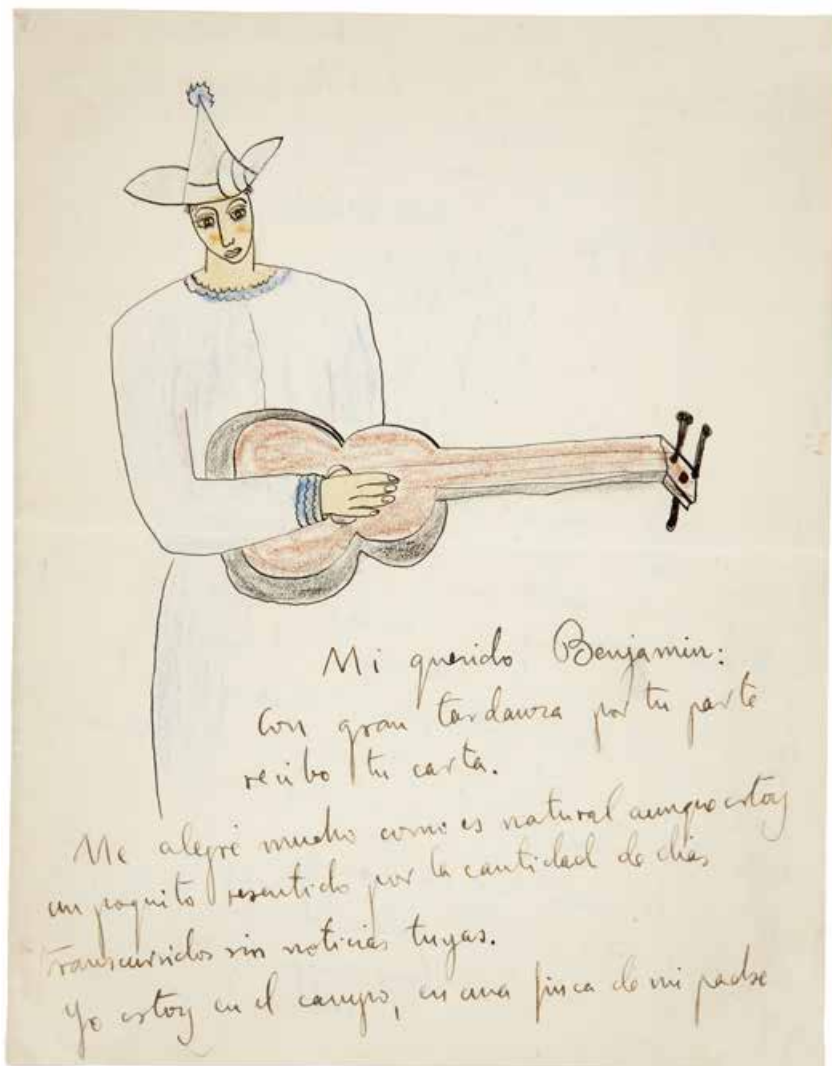 Mi querido Benjamin:
Con gran tardanza por tu parte
recibo tu carta.
Me alegré mucho como es natural aunque estoy
un poquito resentido por la cantidad de dias
transcurridos sin noticias tuyas.
Yo estoy en el campo, en una finca de mi padre